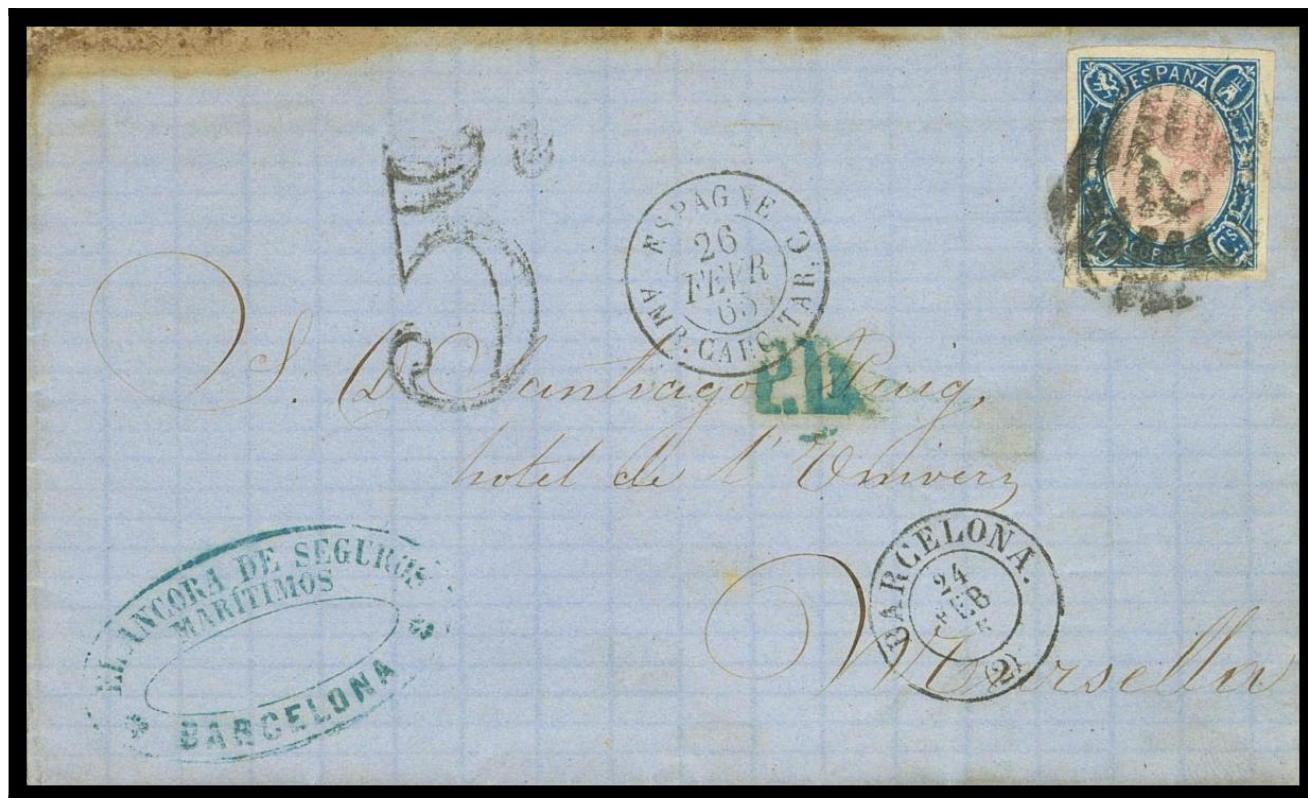 ESPAÑA
CORREOS
5
ESPAGNE
26
FEVR
65
AMB. CARC. TAR. C
P.D.
S. D. Santiago Puig,
hotel de l'Univers
Marsella
BARCELONA.
24
FEB
(2)
EL ANCORA DE SEGUROS
MARÍTIMOS
BARCELONA